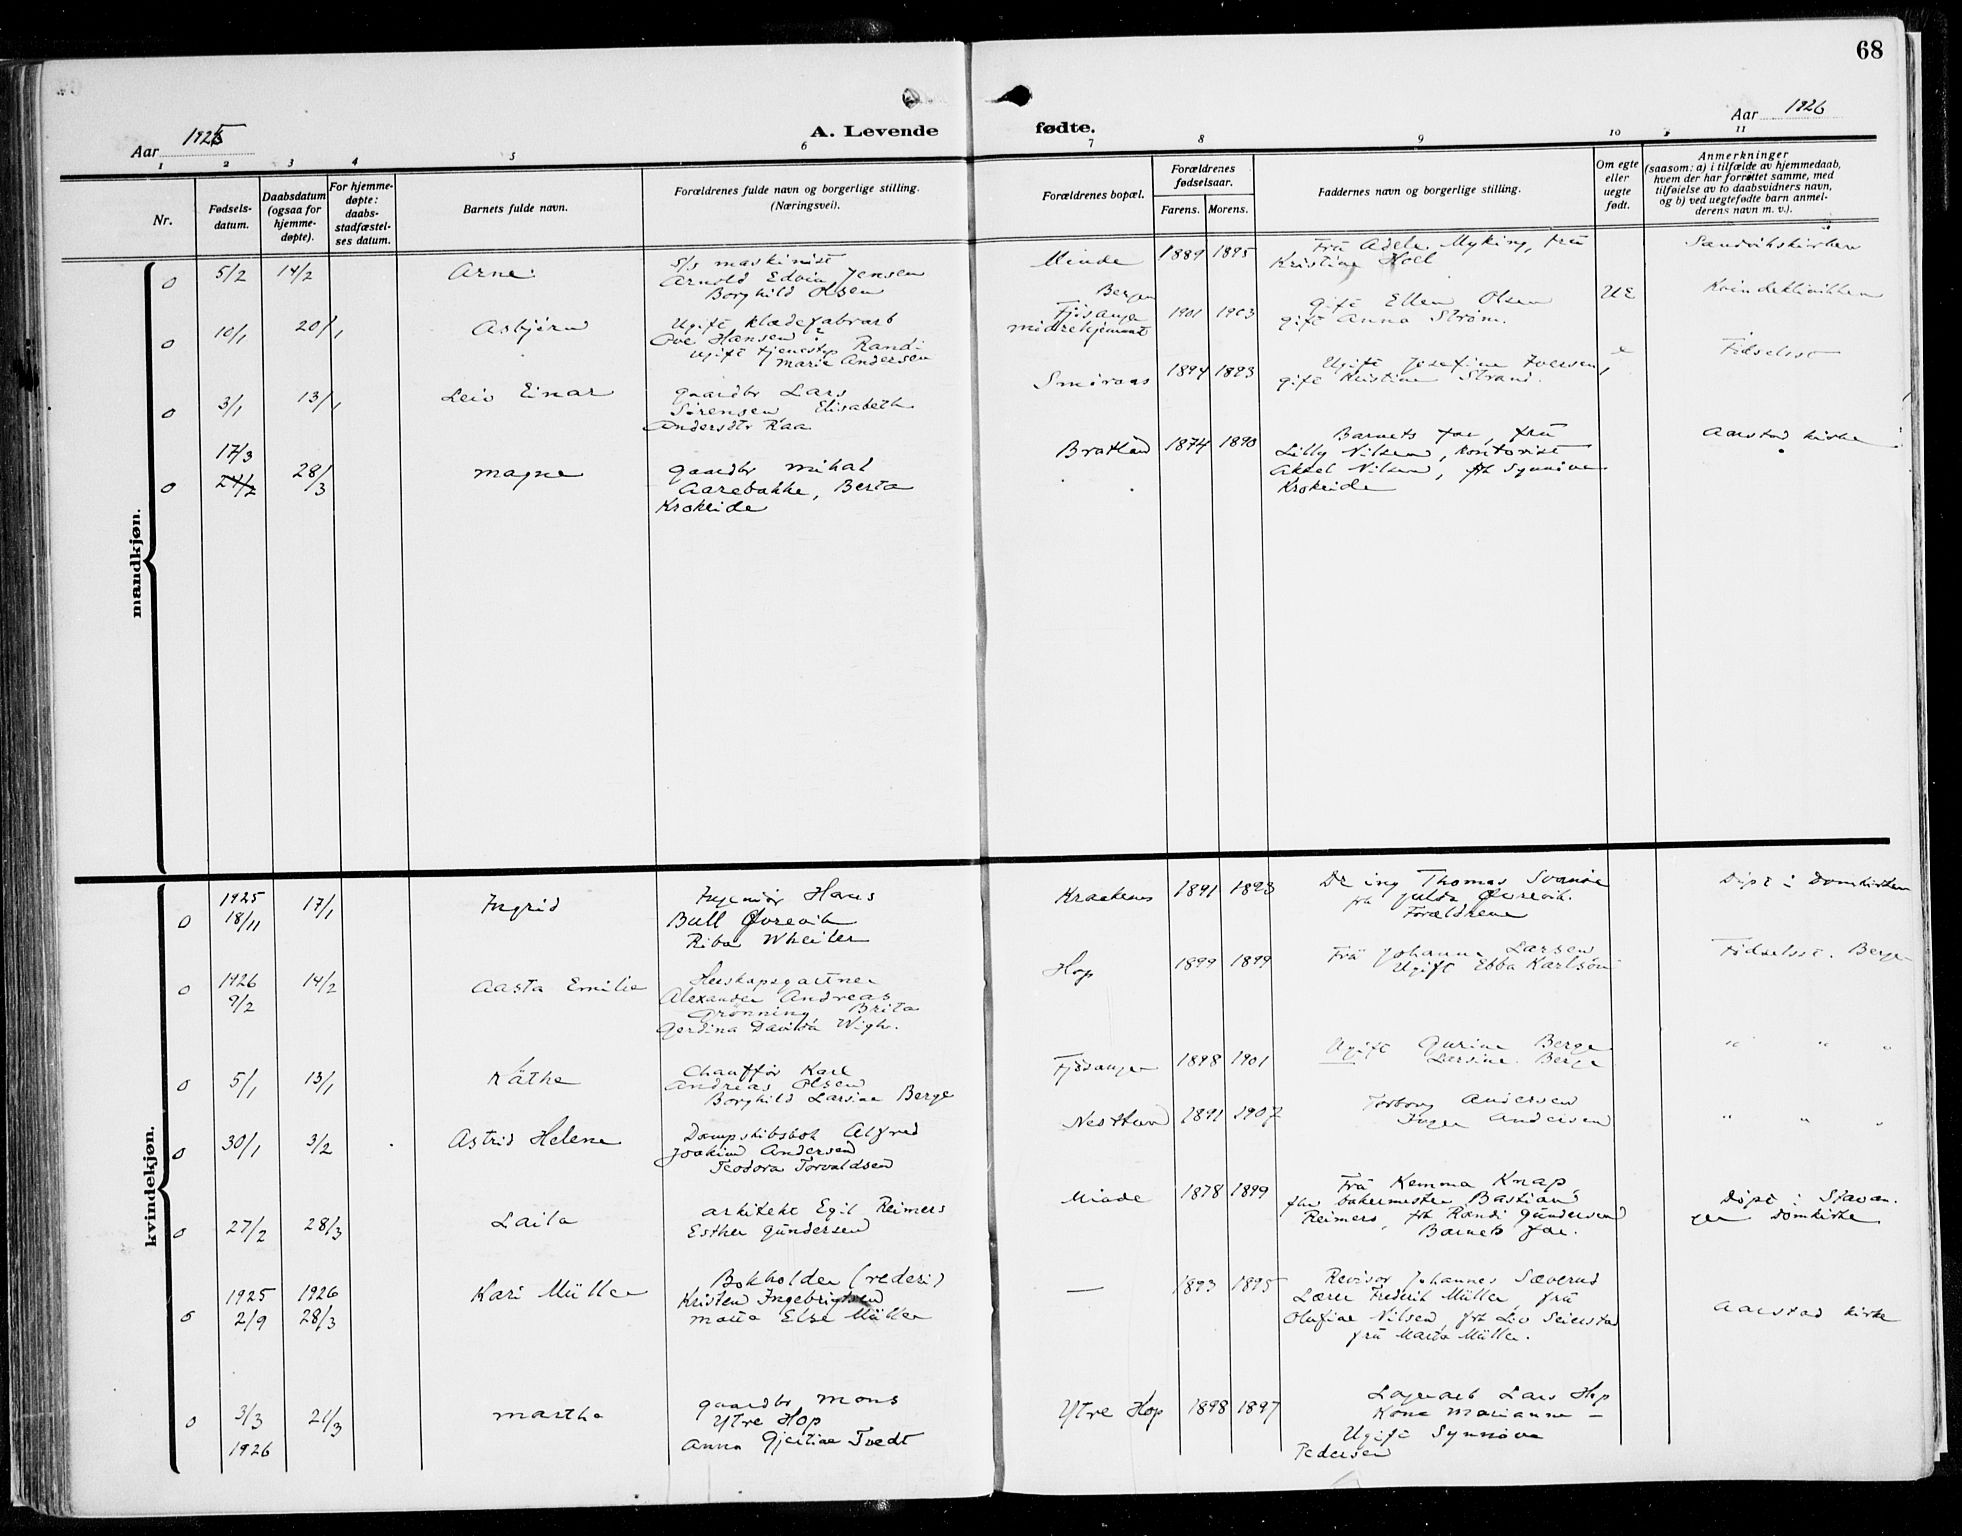 68
Aar 1925
A. Levende fødte.
Aar 1926
1 2 3 4 5 6 7 8 9 10 11
Nr.
Fødsels-
datum.
Daabsdatum
(ogsaa for
hjemme-
døpte).
For hjemme-
døpte:
daabs-
stadfæstel-
ses datum.
Barnets fulde navn.
Forældrenes fulde navn og borgerlige stilling.
(Næringsvei).
Forældrenes bopæl.
Forældrenes
fødselsaar.
Farens. Morens.
Faddernes navn og borgerlige stilling.
Om egte
eller
uegte
født.
Anmerkninger
(saasom: a) i tilfælde av hjemmedaab,
hvem der har forrettet samme, med
tilføielse av to daabsvidners navn,
og b) ved uegtefødte barn anmel-
derens navn m. v.).
mandkjøn.
0 5/2 14/2 Arne
S/S maskinist
Arnold Edvin Jensen
Borghild Olsen
Minde 1889 1895
Frü Adele Myking, frü
Kristine Hoel
Sandvikskirken
0 10/1 20/1 Asbjørn
Ugift klædefabrarb
Ove Hansen
ugift tjenestp Randi
Marie Andersen
Bergen
Fjøsanger
Midrehjemmet
1901 1903
gift Ellen Olsen
gift Anna Strøm.
UE
Kvindeklinikken
0 3/1 13/1 Leiv Einar
gaardbr Lars
Sørensen Elisabeth
Andersdtr Raa
Smøraas 1894 1893
Ugift Josefine Iversen,
gift Kristine Strand.
Fødselsst
0 17/3
24/2
28/3 Magne
gaardbr Mikal
Aarebakke, Berta
Krokeide
Bratland 1874 1890
Barnets far, frü
Lilly Nilsen, kontorist
Aksel Nilsen, frk Synnøve
Krokeide
Aarstad kirke
kvindekjøn.
0 1925
18/11 17/1 Ingrid
Ingeniør Hans
Bull Øvrevik
Riba Wheiler
Kraakenes 1891 1893
Dr ing Thomas Svanøe
frk Julda Øvrevik.
Forældrene
Døpt i Domkirken
0 1926
9/2 14/2 Aasta Emilie
Herskapsgartner
Alexander Andreas
Grønning Brita
Gerdina Davida Wigh.
Hop 1899 1899
Frü Johanne Larsen
Ugift Ebba Karlson
Fødselsst. Bergen
0 5/1 13/1 Käthe
Chauffør Karl
Andreas Olsen
Borghild Larsine Berge
Fjøsanger 1898 1901
Ugift Gurine Berge
Larsine Berge
" " "
0 30/1 3/2 Astrid Helene
Dampskibsbok Alfred
Joakim Andersen
Teodora Torvaldsen
Nesttun 1891 1907
Torborg Andersen
Inger Andersen
" " "
0 27/2 28/3 Laila
arkitekt Egil Reimers
Esther Gündersen
Minde 1878 1899
Frü Kemma Knap,
fhv bakermester Bastian
Reimers, frk Randi Gündersen
Barnets far.
Døpt i Stavan.
ger domkirke
0 1925
2/9
1926
28/3
Kari Müller
Bokholder (rederi)
Kristen Ingebrigtsen
Maria Else Müller
— 1893 1895
Revisor Johannes Sæverud
Lærer Frederik Müller, frü
Olufine Nilsen, frk Liv Seierstad
frü Marta Müller.
Aarstad kirke
0 3/3
1926
21/3 Martha
gaardbr Mons
Ytre Hop
Anna Gjertine Tvedt
Ytre Hop 1898 1897
Lagerarb Lars Hop
Kone Marianne —
Ugift Synnøve
Pedersen